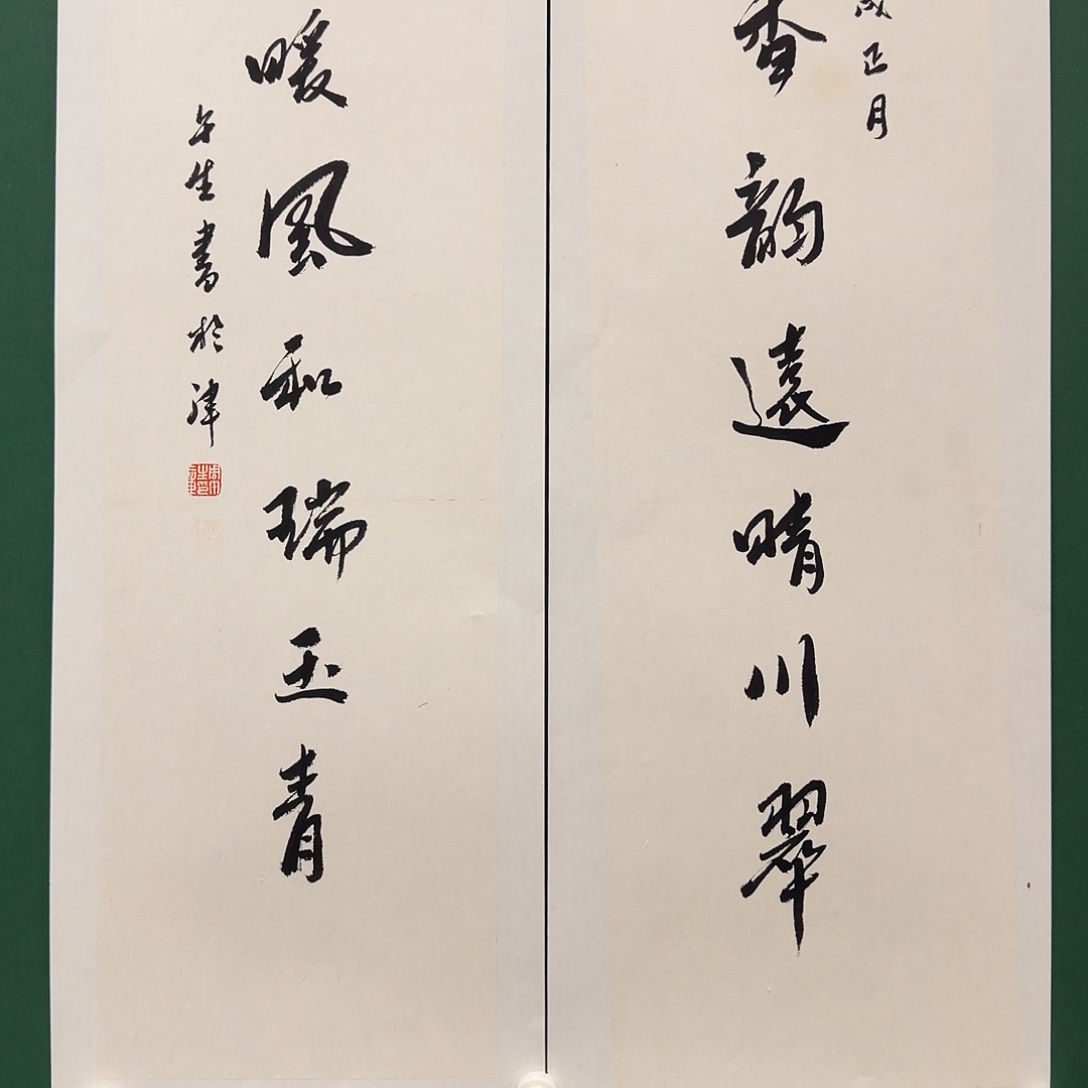 正月
香韵遠晴川翠
暖風和瑞玉青
午生書於津